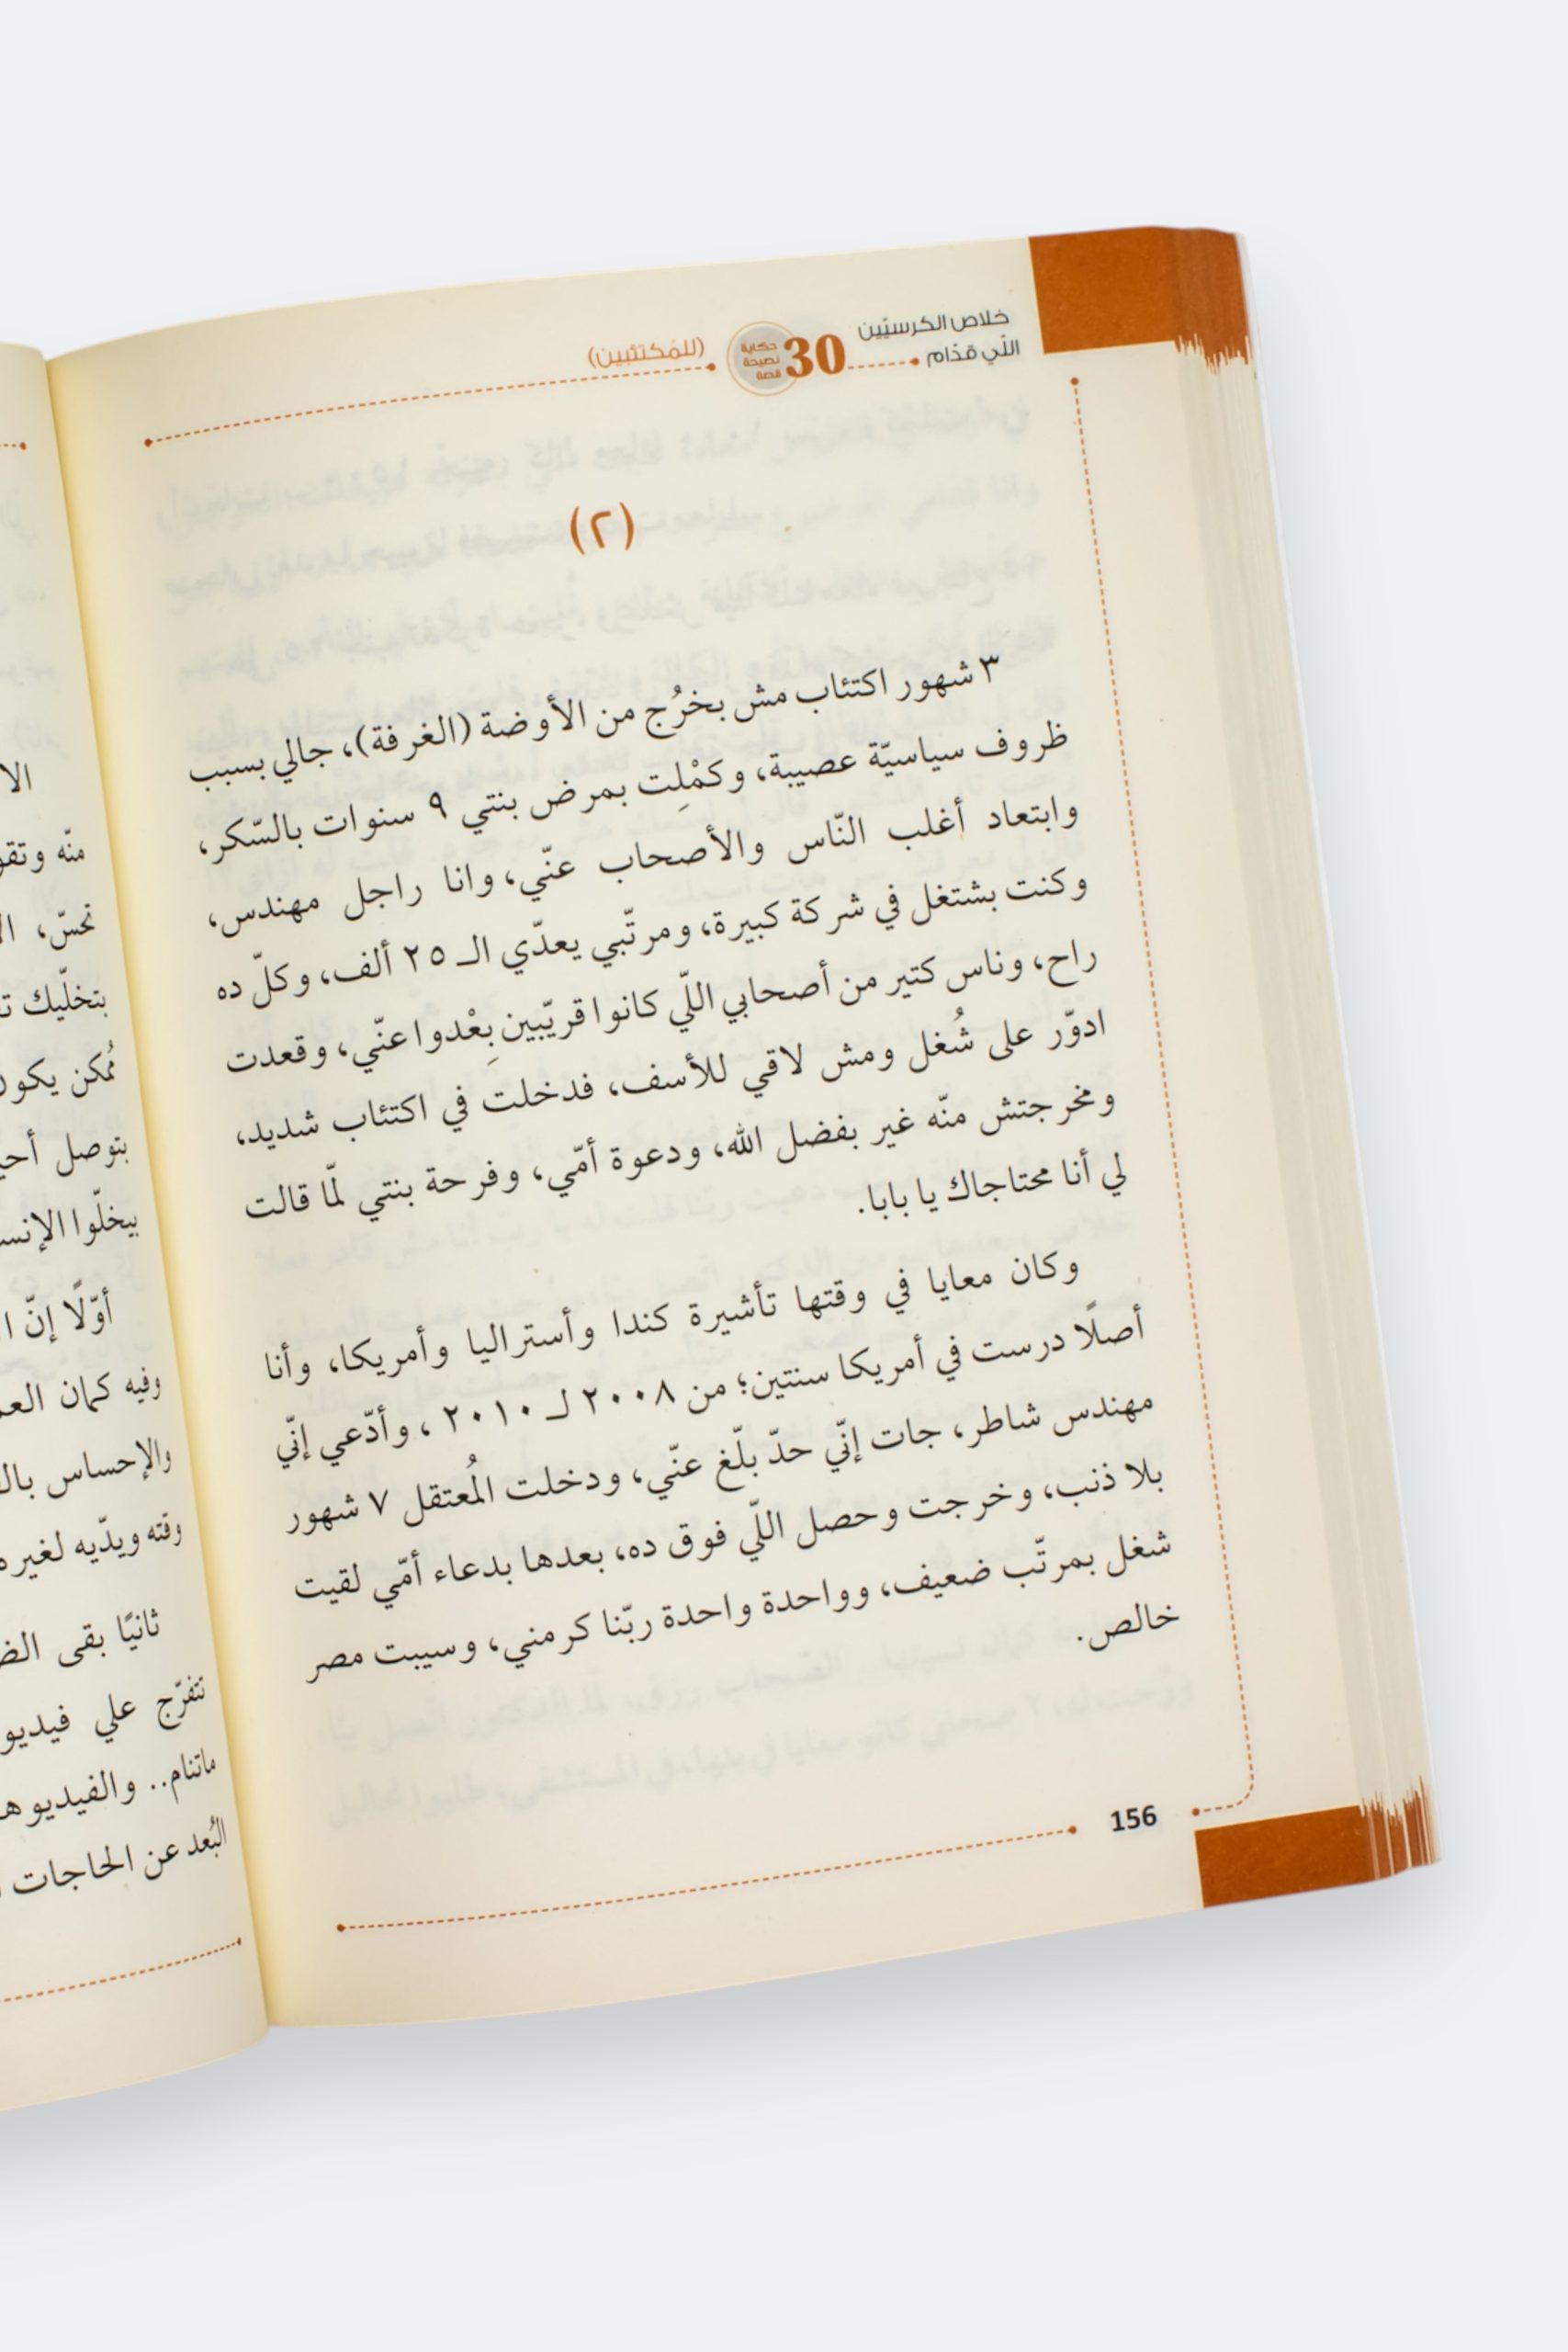 خلاص الكرسيّين
اللّي قدّام
30
حكاية
نصيحة
قصة
(للمُكتئبين)
(٢)
٣ شهور اكتئاب مش بخرُج من الأوضة (الغرفة)، جالي بسبب
ظروف سياسيّة عصيبة، وكمْلِت بمرض بنتي ٩ سنوات بالسّكر،
وابتعاد أغلب النّاس والأصحاب عنّي، وانا راجل مهندس،
وكنت بشتغل في شركة كبيرة، ومرتّبي يعدّي الـ ٢٥ ألف، وكلّ ده
راح، وناس كتير من أصحابي اللّي كانوا قريّبين بِعْدوا عنّي، وقعدت
ادوّر على شُغل ومش لاقي للأسف، فدخلت في اكتئاب شديد،
ومخرجتش منّه غير بفضل الله، ودعوة أمّي، وفرحة بنتي لمّا قالت
لي أنا محتاجاك يا بابا.
وكان معايا في وقتها تأشيرة كندا وأستراليا وأمريكا، وأنا
أصلًا درست في أمريكا سنتين؛ من ٢٠٠٨ لـ ٢٠١٠ ، وأدّعي إنّي
مهندس شاطر، جات إنّي حدّ بلّغ عنّي، ودخلت المُعتقل ٧ شهور
بلا ذنب، وخرجت وحصل اللّي فوق ده، بعدها بدعاء أمّي لقيت
شغل بمرتّب ضعيف، وواحدة واحدة ربّنا كرمني، وسيبت مصر
خالص.
156
منّه
تحسّ،
بتخلّيك
مُمكن يكون
بتوصل
بيخلّوا
أوّلًا إنّ
وفيه كمان
والإحساس
وقته ويدّيه لغيره
ثانيًا بقى
تتفرّج علي
ماتنام.. والفيديو
البُعد عن الحاجات